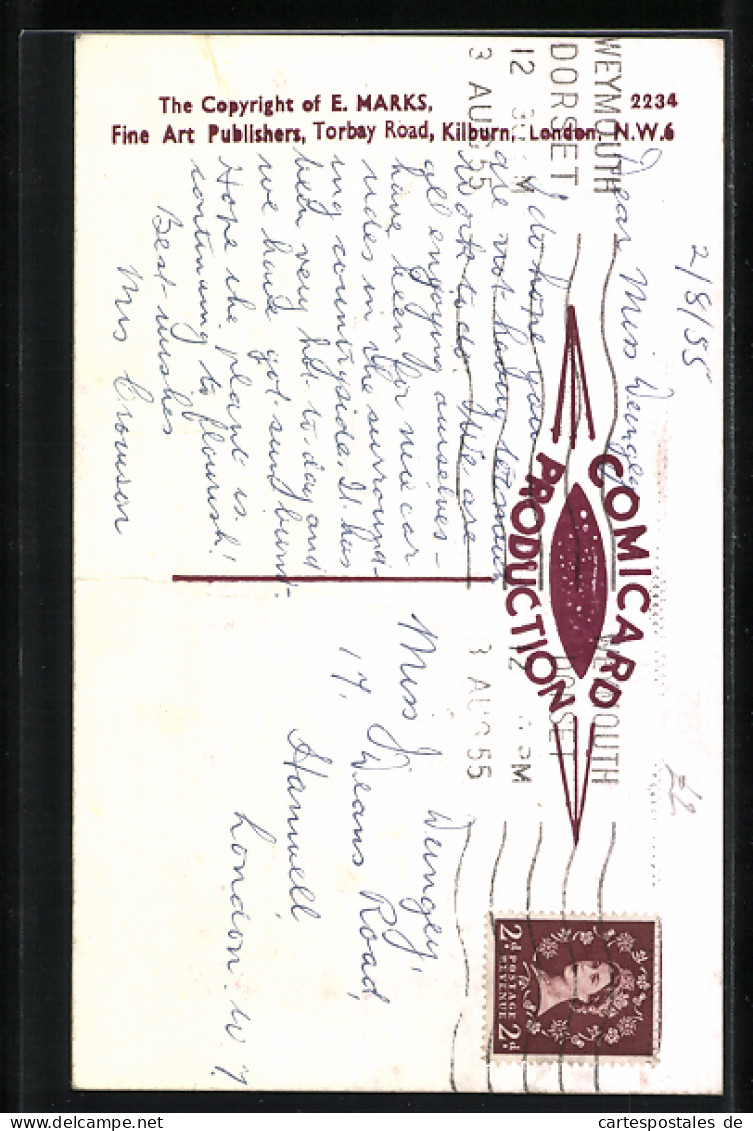 The Copyright of E. MARKS, 2234
Fine Art Publishers, Torbay Road, Kilburn, London, N.W.6
WEYMOUTH
DORSET
12 PM
3 AUG 55
WEYMOUTH
DORSET
12 PM
3 AUG 55
COMICARD
PRODUCTION
2/8/55
Dear Miss
I do hope you
are not having too much
work to do. We are
all enjoying ourselves –
have been for nice car
rides in the surround-
ing countryside. It has
been very hot to-day and
we have got sun burnt.
Hope the plant is
continuing to flourish!
Best wishes
Mrs
Miss J.
17, Deans Road,
Hanwell,
London. W 7.
£2
2d POSTAGE
REVENUE 2d
cartespostales de